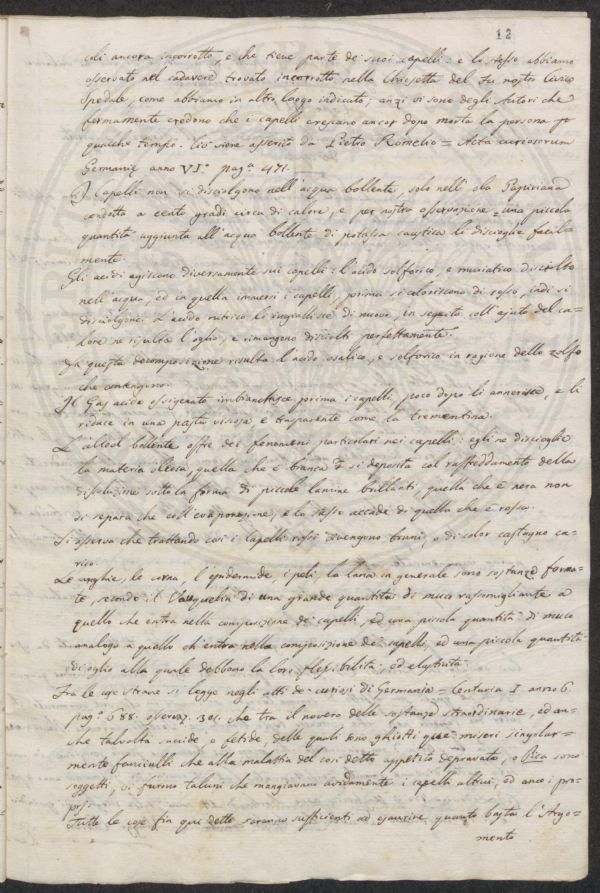 12
coli ancora incorrotto, e che tiene parte de' suoi capelli: e lo stesso abbiamo
osservato nel cadavere trovato incorrotto nella Chiesetta del fu nostro Civico
Spedale, come abbiamo in altro luogo indicato; anzi vi sono degli Autori che
fermamente credono che i capelli crescano ancor dopo morta la persona p
qualche tempo. Ciò viene asserito da Pietro Romelio = Acta curiosorum
Germaniæ anno VI.° pag.a 471.
I Capelli non si disciolgono nell'acqua bollente, solo nell'olla Papiniana
condotta a cento gradi circa di calore, e per nostra osservazione = una piccola
quantità aggiunta all'acqua bollente di potassa caustica li discioglie facil-
mente.
Gli acidi agiscono diversamente sui capelli: l'acido solforico, e muriatico disciolto
nell'acqua, ed in quella immersi i capelli, prima si coloriscono di rosso, indi si
disciolgono. L'acido nitrico li ingiallisce di nuovo, in seguito coll'ajuto del ca-
lore ne risulta l'oglio, e rimangono disciolti perfettamente.
Da questa decomposizione risulta l'acido ossalico, e solforico in ragione dello zolfo
che contengono.
Il Gas acido ossigenato imbianchisce prima i capelli, poco dopo li annerisce, e li
riduce in una pasta viscosa e trasparente come la trementina.
L'alcool bollente offre dei fenomeni particolari nei capelli: egli ne discioglie
la materia oleosa, quella che è bianca si deposita col raffreddamento della
dissoluzione sotto la forma di piccole lamine brillanti, quella che è nera non
si separa che coll'evaporazione; e lo stesso accade di quella che è rossa.
Si osserva che trattando così i Capelli rossi divengono bruni, o di color castagno ca-
rico.
Le unghie, le corna, l'epidermide, i peli, la lana in generale sono sostanze forma-
te, secondo il Vauquelin di una grande quantità di muco rassomigliante a
quello che entra nella composizione de' capelli, ed una piccola quantità di muco
analogo a quello ch'entra nella composizione de' capelli, ed una piccola quantità
di oglio alla quale debbono la loro flessibilità, ed elasticità.
Fra le cose strane si legge negli atti de' curiosi di Germania = Centuria I. anno 6.
pag.a 688. osservaz. 301. che tra il novero delle sostanze straordinarie, ed an-
che talvolta sucide, o fetide, delle quali sono ghiotti que' miseri singolar-
mente fanciulli che alla malattia del così detto appetito depravato, o Pica sono
soggetti, vi furono taluni che mangiavano avidamente i capelli altrui, ed anco i pro-
prj.
Tutte le cose fin qui dette saranno sufficienti ad esaurire quanto basta l'Argo-
mento